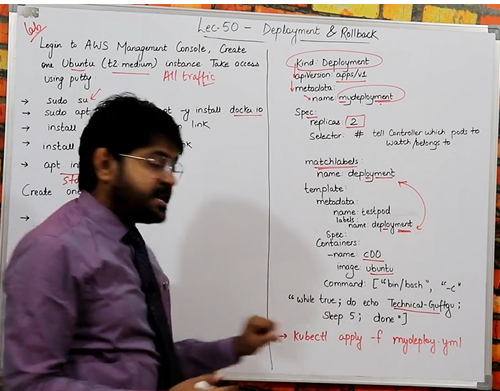 Lec-50 - Deployment & Rollback
lab
Login to AWS Management Console, Create
one Ubuntu (t2 medium) instance Take access
using putty
All traffic
→ sudo su
→ sudo apt -y install docker.io
→ install link
→ install
→ apt in
Create one
→
Kind: Deployment
apiVersion: apps/v1
metadata
name: mydeployment
Spec:
replicas: 2
Selector: # tell Controller which pods to
watch/belongs to
matchlabels
name: deployment
template:
metadata:
name: testpod
labels:
name: deployment
Spec:
Containers:
-name C00
image: ubuntu
Command: ["bin/bash", "-c"
"while true; do echo Technical-Guftgu;
Sleep 5; done"]
→ Kubectl apply -f mydeploy.yml